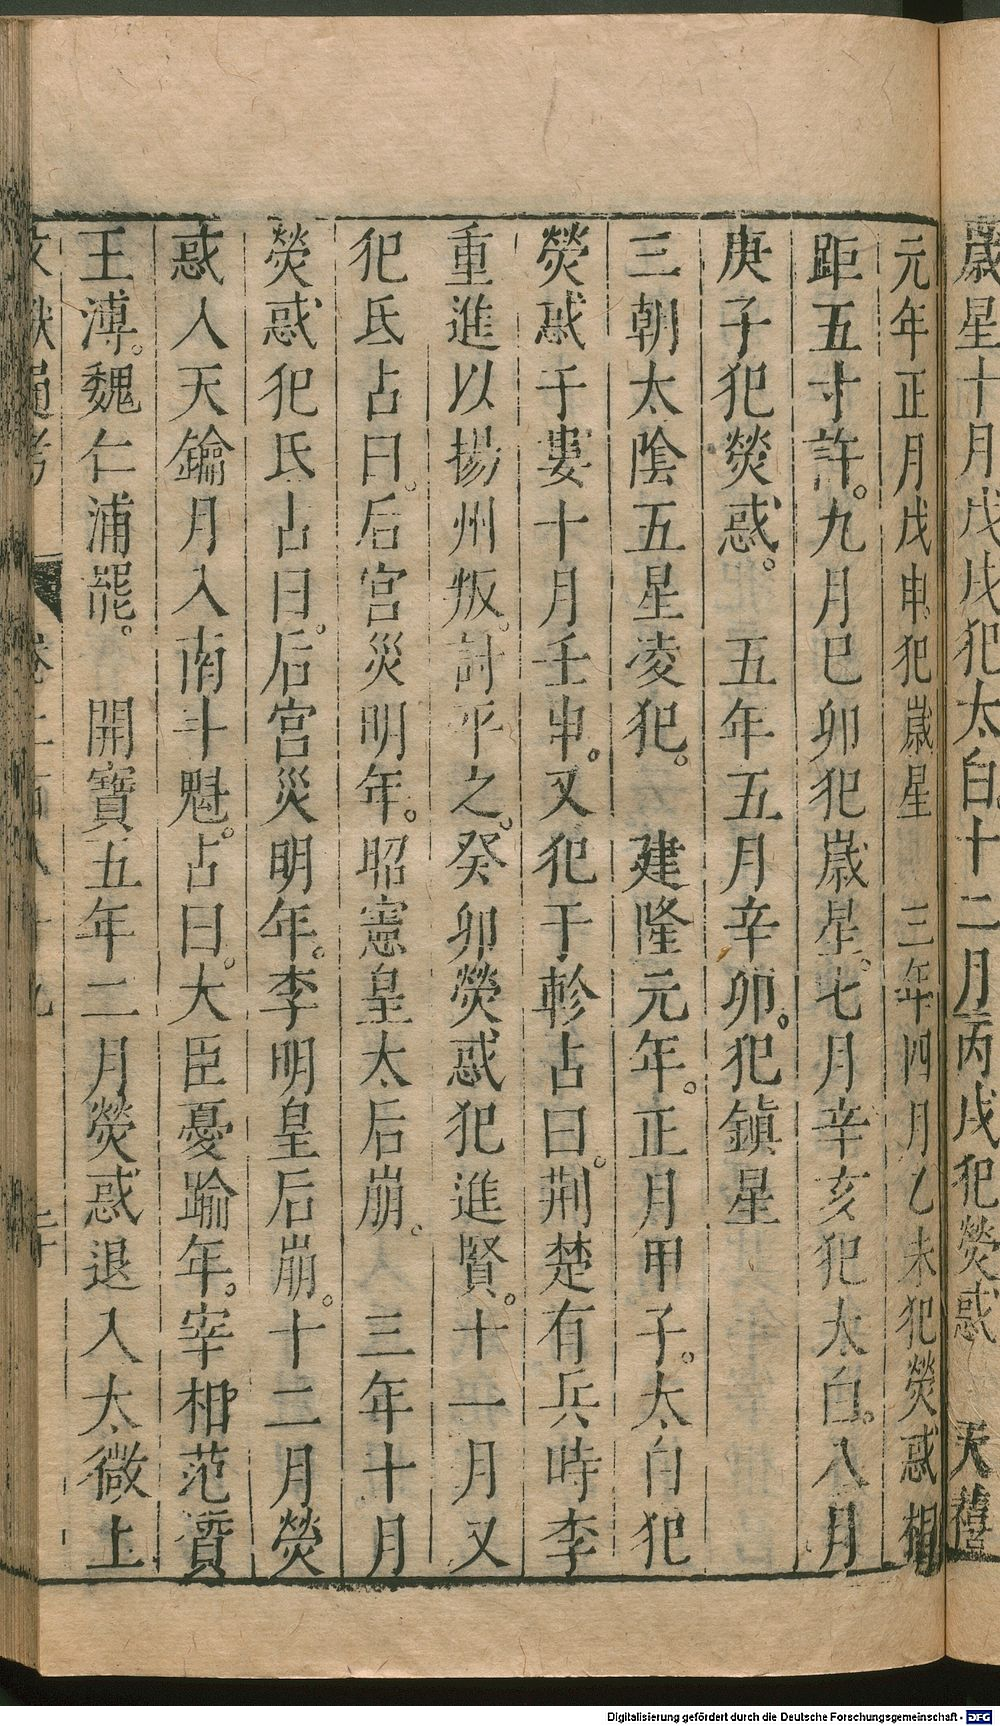 歲星十月戊戌犯太白十二月丙戌犯熒惑　天禧
元年正月戊申犯歲星　三年四月乙未犯熒惑相
距五寸許。九月巳卯犯歲星。七月辛亥犯太白。八月
庚子犯熒惑。　五年五月辛卯。犯鎮星
三朝太陰五星凌犯。　建隆元年。正月甲子。太白犯
熒惑于婁十月壬申。又犯于軫占曰。荆楚有兵時李
重進以揚州叛。討平之。癸卯熒惑犯進賢。十一月又
犯氐占曰。后宮災明年。昭憲皇太后崩。　三年十月
熒惑犯氐占曰。后宮災明年。李明皇后崩。十二月熒
惑入天鑰月入南斗魁。占曰。大臣憂踰年。宰相范質
王溥。魏仁浦罷。　開寶五年二月熒惑退入太微上
文獻通考　卷二百八十九　二十
Digitalisierung gefördert durch die Deutsche Forschungsgemeinschaft - DFG